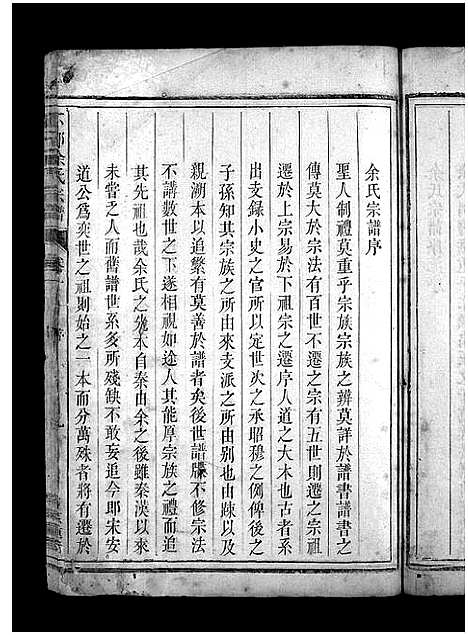 余氏宗譜序
聖人制禮莫重乎宗族宗族之辨莫詳於譜書譜書之
傳莫大於宗法有百世不遷之宗有五世則遷之宗祖
遷於上宗易於下祖宗之遷序人道之大本也古者系
出支録小史之官所以定世次之承昭穆之例俾後之
子孫知其宗族之所由來支派之所由别也由踈以及
親溯本以追繫有莫善於譜者矣後世譜牒不修宗法
不講數世之下遂相視如途人其能厚宗族之禮而追
其先祖也哉余氏之先本自秦由余之後雖秦漢以來
未嘗乏人而舊譜世系多所殘缺不敢妄追今即宋安
道公爲奕世之祖則始之一本而分萬殊者將有遷於
余氏宗譜
余氏宗譜序